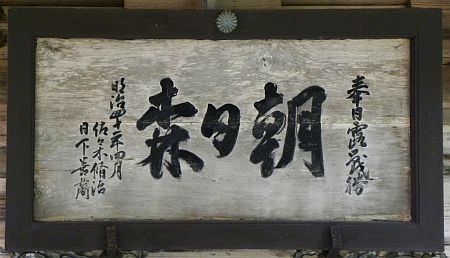 奉日露戦勝
朝日森
明治四十二年四月
佐々木脩治
日下